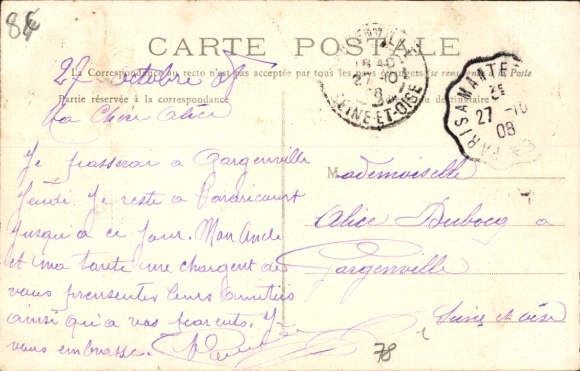 8€
CARTE POSTALE
La Correspondance au recto n'est pas acceptée par tous les pays étrangers (se renseigner à la Poste
Partie réservée à la correspondance
destinataire
27 octobre 08
Ma Chère Alice
Je passerai a Gargenville
Jeudi. Je reste a
jusqu'a ce jour. Mon Oncle
et ma tante me chargent de
vous presentes leurs amities
ainsi qu'a vos parents. Je
vous embrasse.
Mademoiselle
Alice Dubocq a
Gargenville
Seine et Oise
78
27 10
08
SEINE-ET-OISE
PARIS A MANTE
27 -10
08